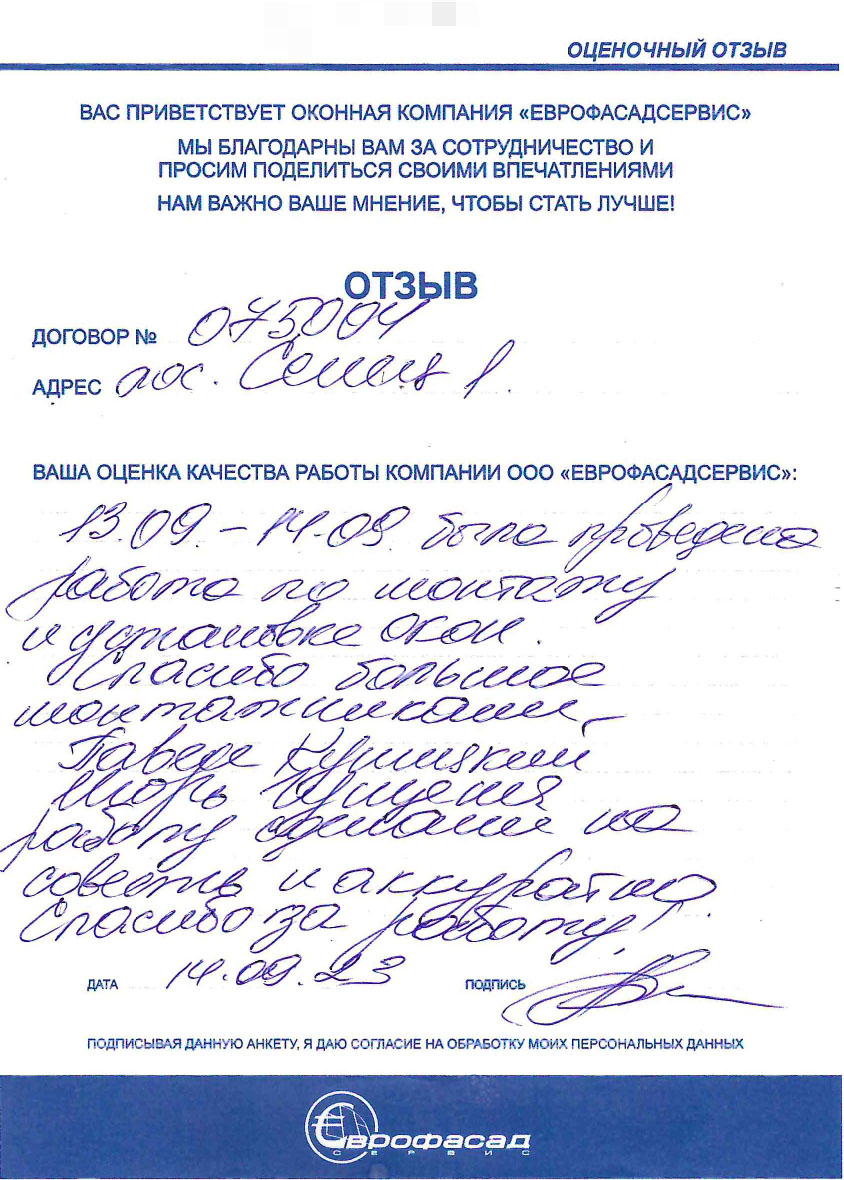 ОЦЕНОЧНЫЙ ОТЗЫВ
ВАС ПРИВЕТСТВУЕТ ОКОННАЯ КОМПАНИЯ «ЕВРОФАСАДСЕРВИС»
МЫ БЛАГОДАРНЫ ВАМ ЗА СОТРУДНИЧЕСТВО И
ПРОСИМ ПОДЕЛИТЬСЯ СВОИМИ ВПЕЧАТЛЕНИЯМИ
НАМ ВАЖНО ВАШЕ МНЕНИЕ, ЧТОБЫ СТАТЬ ЛУЧШЕ!
ОТЗЫВ
ДОГОВОР № 075004
АДРЕС пос.
ВАША ОЦЕНКА КАЧЕСТВА РАБОТЫ КОМПАНИИ ООО «ЕВРОФАСАДСЕРВИС»:
13.09. – 14.09. была проведена
работа по монтажу
и установке окон.
Спасибо большое
монтажниками –
работу сделали на
совесть и аккуратно.
Спасибо за работу!
ДАТА 14.09.23 ПОДПИСЬ
ПОДПИСЫВАЯ ДАННУЮ АНКЕТУ, Я ДАЮ СОГЛАСИЕ НА ОБРАБОТКУ МОИХ ПЕРСОНАЛЬНЫХ ДАННЫХ
Еврофасад
СЕРВИС